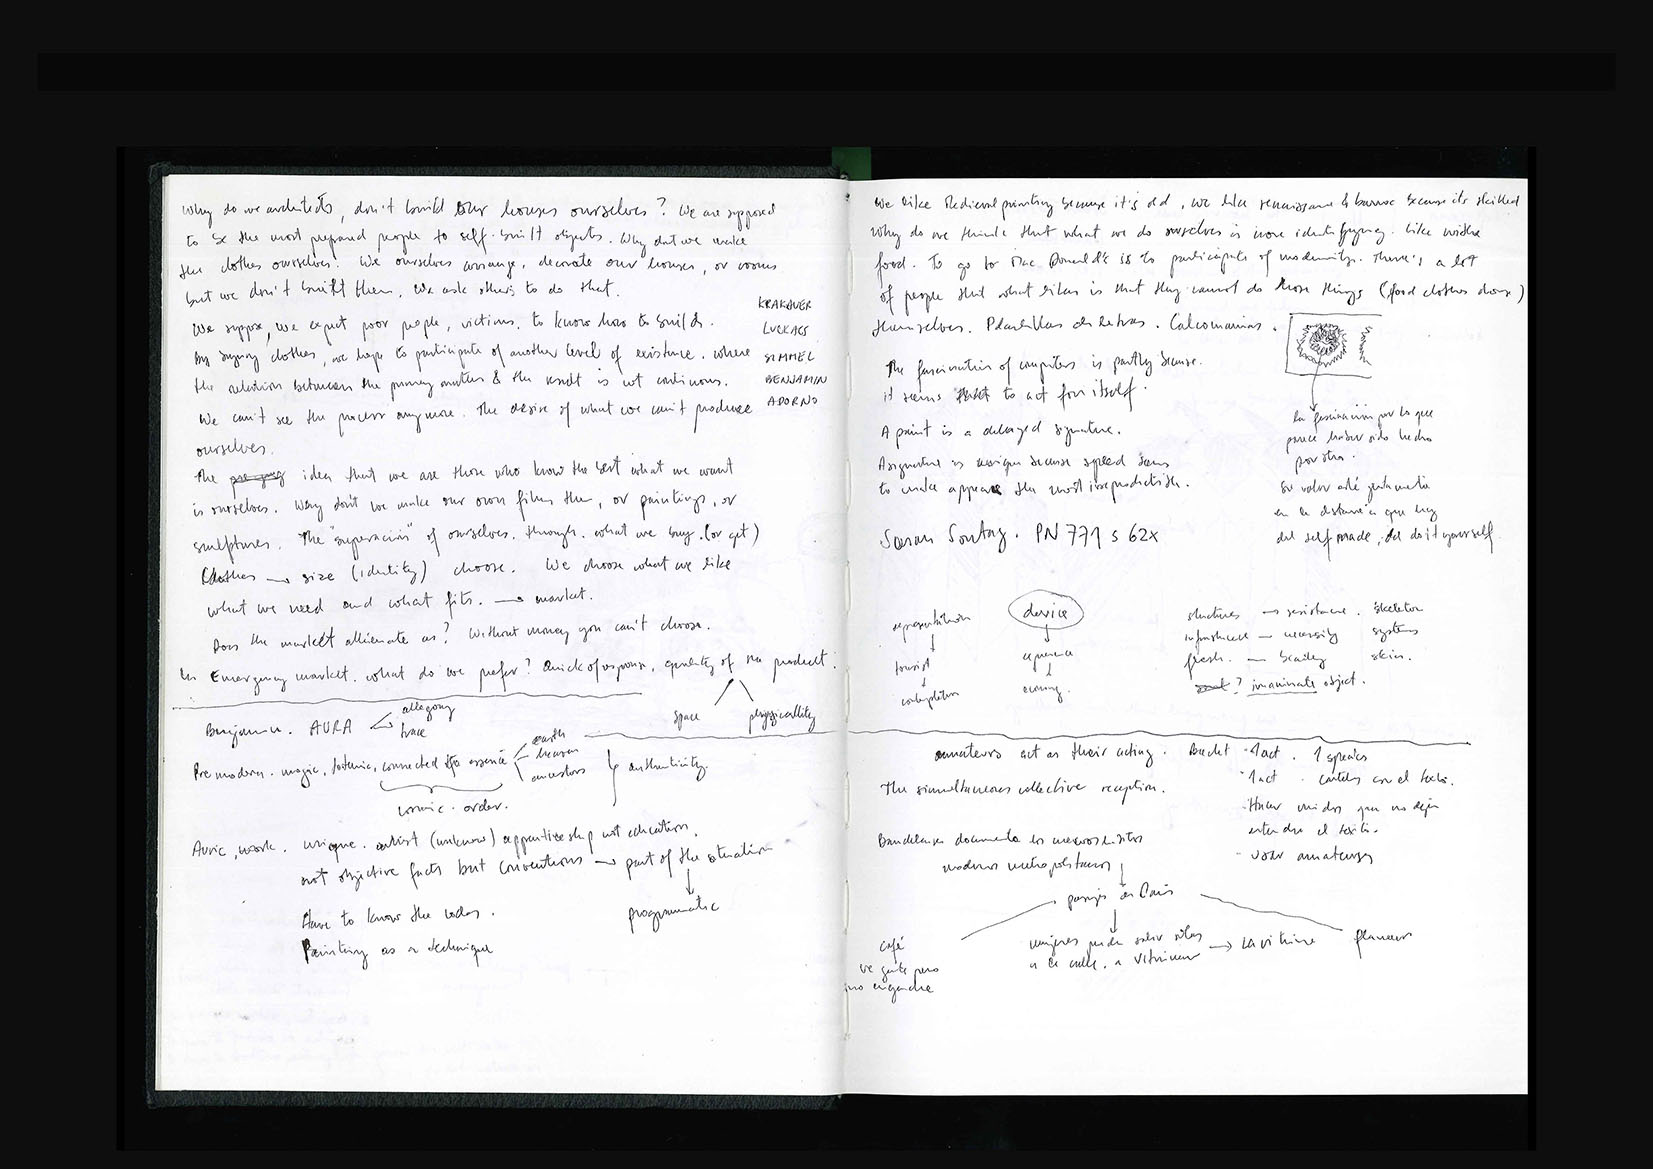 Why do we architects, don't build our houses ourselves? We are supposed
to be the most prepared people to self-built objects. Why dont we make
the clothes ourselves? We ourselves arrange, decorate our houses, or rooms
but we don't built them, we ask others to do that.
We suppose, we expect poor people, victims, to know how to build.
By buying clothes, we hope to participate of another level of existence. where
the relation between the primary matter & the result is not continous.
We can't see the process anymore. The desire of what we can't produce
ourselves.
KRAKAUER
LUCKACS
SIMMEL
BENJAMIN
ADORNO
The idea that we are those who know the best what we want
is ourselves. Why don't we make our own films then, or paintings, or
sculptures. The "superación" of ourselves. through. what we buy. (or get)
Clothes → size (identity) choose. We choose what we like
what we need and what fits. → market.
Does the market allienate us? Without money you can't choose.
In Emergency market. what do we prefer? Quick of response, quality of the product.
space physicallity
Benjamin. AURA allegory
trace
Pre modern. magic, totemic, connected to essence earth
heaven
ancestors
authenticity.
cosmic. order.
Auric, work. unique. artist (unknow) apprenticeship not education.
not objective facts but conventions → part of the situation
programmatic
Have to know the codes.
Painting as a technique
We like Medieval painting because it's old, we like renaissance & barroc because its skilled
Why do we think that what we do ourselves is more identifying. like with
food. To go to Mac Donald's is to participate of modernity. There's a lot
of people that what likes is that they cannot do those things (food clothes house)
themselves. Plantillas de letras. Calcomanias.
The fascination of computers is partly because.
it seems to act for itself.
A paint is a delayed signature.
A signature is unique because speed seems
to make appear the most irreproductible.
Susan Sontag. PN 771 S 62x
la fascinación por lo que
parece haber sido hecho
por otro.
Su valor está justamente
en la distancia que hay
del self made, del do it yourself
representation
tourist
contemplation
device
experience
owning.
structures → resistance. skeleton
infrastruct — necessity systems
flesh. — beauty skin.
? inanimate object.
amateurs act as their acting. Becket · 1 act. 1 species
· 1 act. carteles con el texto.
The simultaneous collective reception.
· Hacer ruidos que no dejen
entender el texto.
· usar amateurs
Baudelaire documenta los
modernos metropolitanos
pasajes de Paris
café
ve gente pero
no engancha
mujeres puden salir solas
a la calle. a vitrinear → La vitrine
flaneur